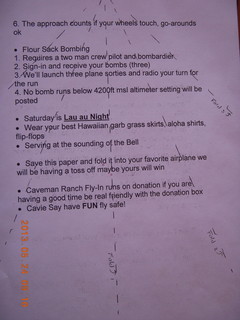 6. The approach counts if your wheels touch, go-arounds
ok
• Flour Sack Bombing
1. Requires a two man crew pilot and bombardier.
2. Sign-in and receive your bombs (three)
3. We'll launch three plane sorties and radio your turn for
the run
4. No bomb runs below 4200ft msl altimeter setting will be
posted
• Saturday is Lau au Night
• Wear your best Hawaiian garb grass skirts, aloha shirts,
flip-flops
• Serving at the sounding of the Bell
• Save this paper and fold it into your favorite airplane we
will be having a toss off maybe yours will win
• Caveman Ranch Fly-In runs on donation if you are
having a good time be real friendly with the donation box
• Cavie Say have FUN fly safe!